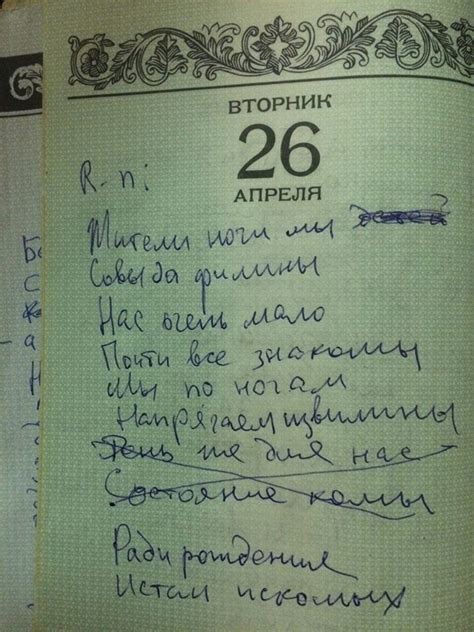 ВТОРНИК
26
АПРЕЛЯ
R-п:
Жители ночи мы
Совы да филины
Нас очень мало
Почти все знакомы
Мы по ночам
Напрягаем извилины
День не для нас
Состояние комы
Ради рождения
Истин искомых